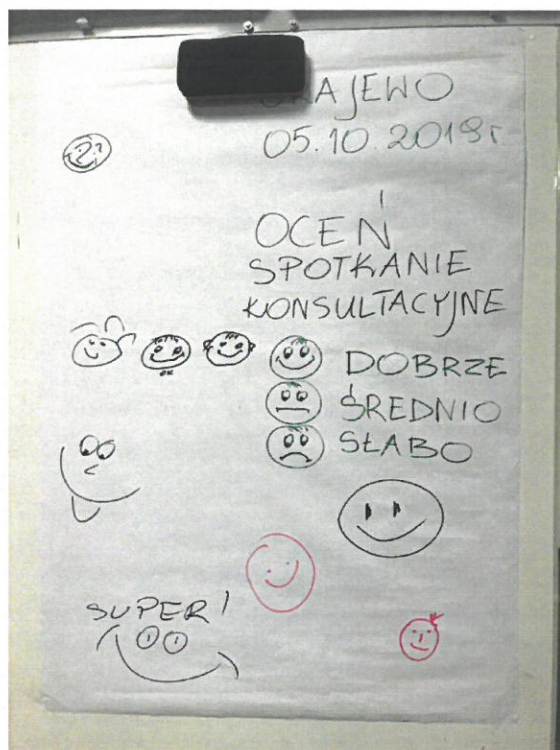 05.10.2019r
OCEŃ
SPOTKANIE
KONSULTACYJNE
DOBRZE
ŚREDNIO
SŁABO
SUPER!